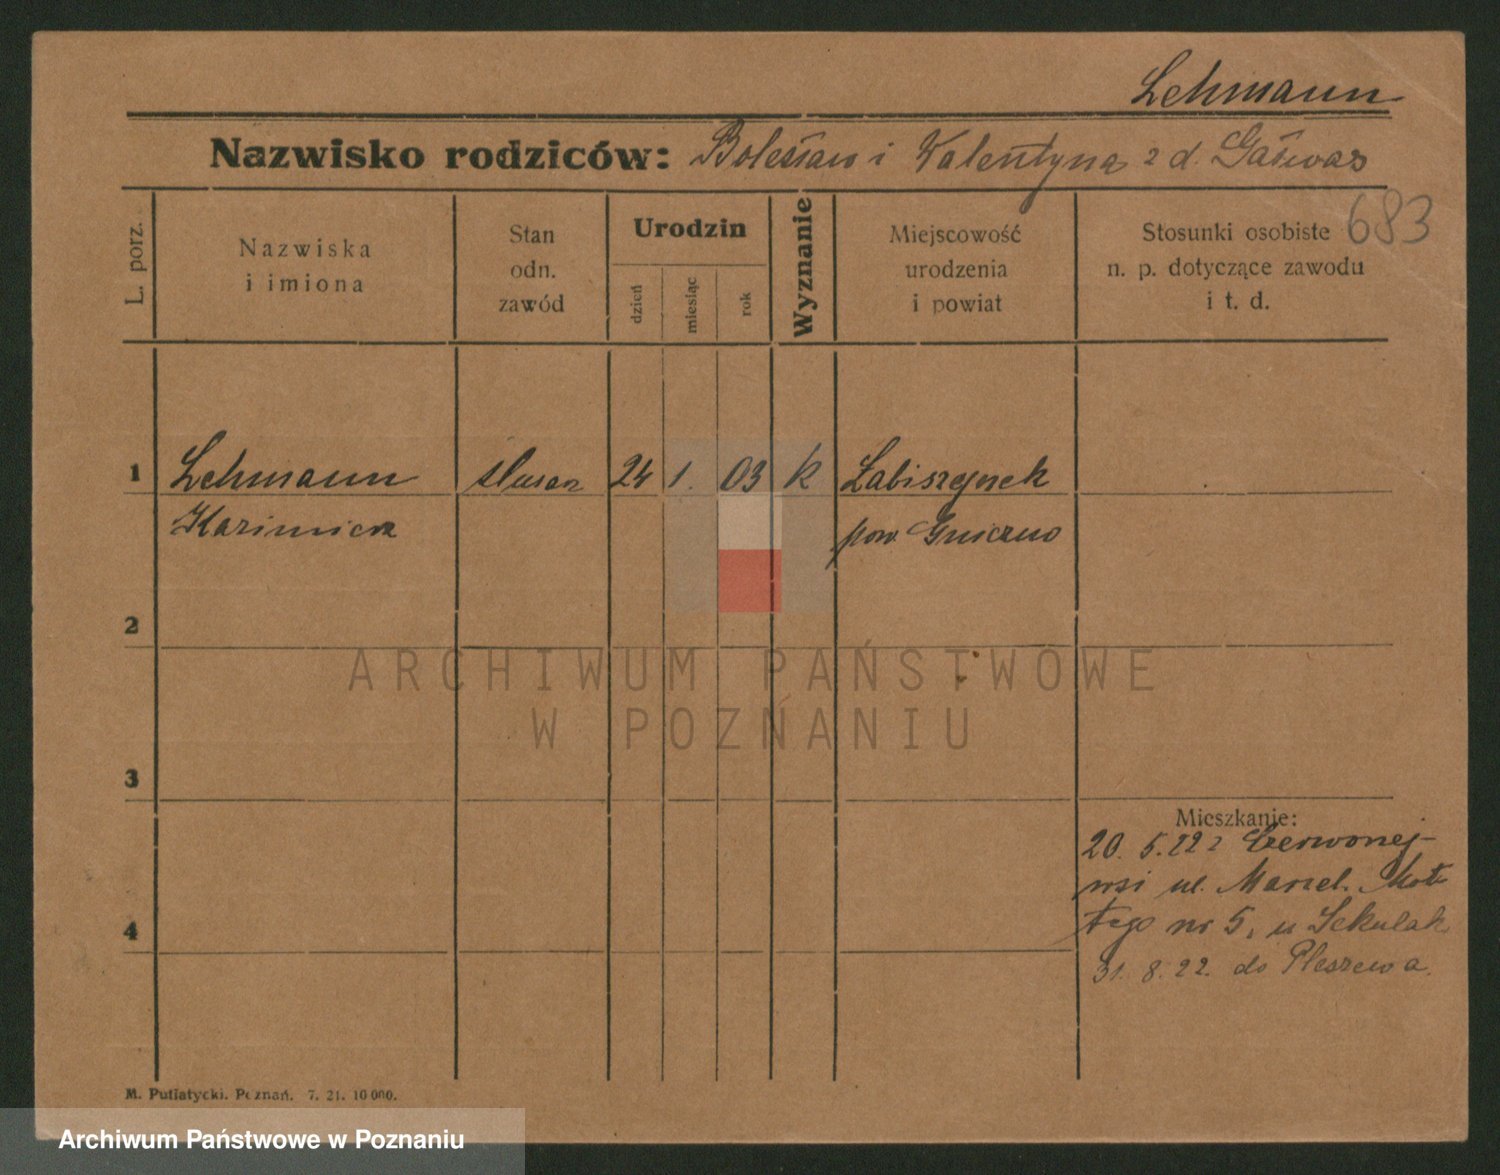 Lehmann
Nazwisko rodziców: Bolesław i Walentyna z d. Gałwas
683
L. porz.
Nazwiska
i imiona
Stan
odn.
zawód
Urodzin
dzień
miesiąc
rok
Wyznanie
Miejscowość
urodzenia
i powiat
Stosunki osobiste
n. p. dotyczące zawodu
i t. d.
1 Lehmann ślusarz 24 1. 03 k Łabiszynek
Kazimierz pow. Gniezno
2
ARCHIWUM PAŃSTWOWE
W POZNANIU
3
Mieszkanie:
20. 5. 22 z Czerwonej-
wsi ul. Marcel. Mot-
tego nr 5, u Sekulak
4
31. 8. 22. do Pleszewa.
M. Putiatycki. Poznań. 7. 21. 10 000.
Archiwum Państwowe w Poznaniu